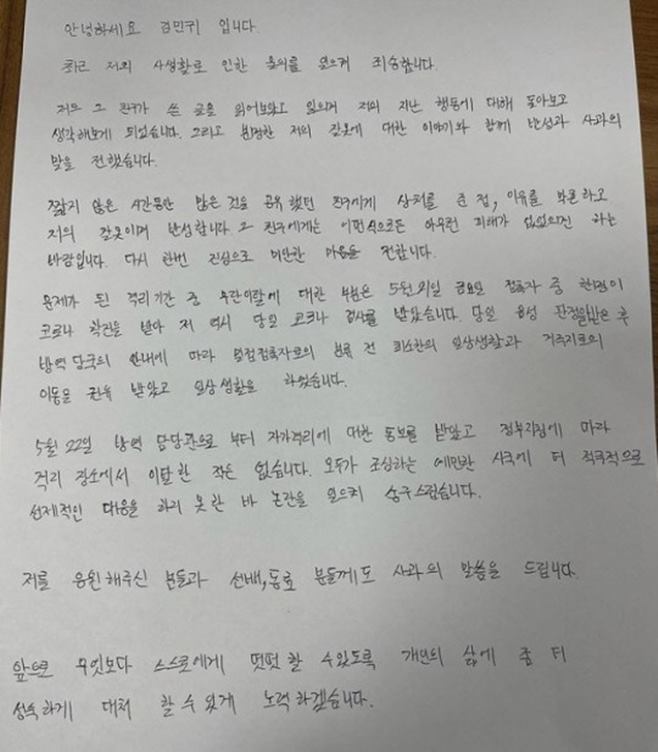 안녕하세요 김민귀 입니다.
최근 저의 사생활로 인한 논의를 일으켜 죄송합니다.
저도 그 친구가 쓴 글을 읽어보았고 읽으며 저의 지난 행동에 대해 돌아보고
생각해보게 되었습니다. 그리고 분명한 저의 잘못에 대한 이야기와 함께 반성과 사과의
말을 전했습니다.
짧지 않은 시간동안 많은 것을 공유했던 친구에게 상처를 준 점, 이유를 막론하고
저의 잘못이며 반성합니다. 그 친구에게는 어떤식으로든 아무런 피해가 없었으면 하는
바람입니다. 다시 한번 진심으로 미안한 마음을 전합니다.
문제가 된 격리기간 중 무단이탈에 대한 부분은 5월 21일 금요일 접촉자 중 한명이
코로나 확진을 받아 저 역시 당일 코로나 검사를 받았습니다. 당일 음성 판정을받은 후
방역 당국의 안내에 따라 밀접접촉자로의 분류 전 최소한의 일상생활과 거주지로의
이동을 권유 받았고 일상 생활을 하였습니다.
5월 22일 방역 담당관으로 부터 자가격리에 대한 통보를 받았고 정부지침에 따라
격리 장소에서 이탈한 적은 없습니다. 모두가 조심하는 예민한 시국에 더 적극적으로
선제적인 대응을 하지 못한 바 논란을 일으켜 송구스럽습니다.
저를 응원해주신 분들과 선배,동료 분들께도 사과의 말씀을 드립니다.
앞으로 무엇보다 스스로에게 떳떳할 수있도록 개인의 삶에 좀 더
성숙하게 대처 할 수 있게 노력하겠습니다.